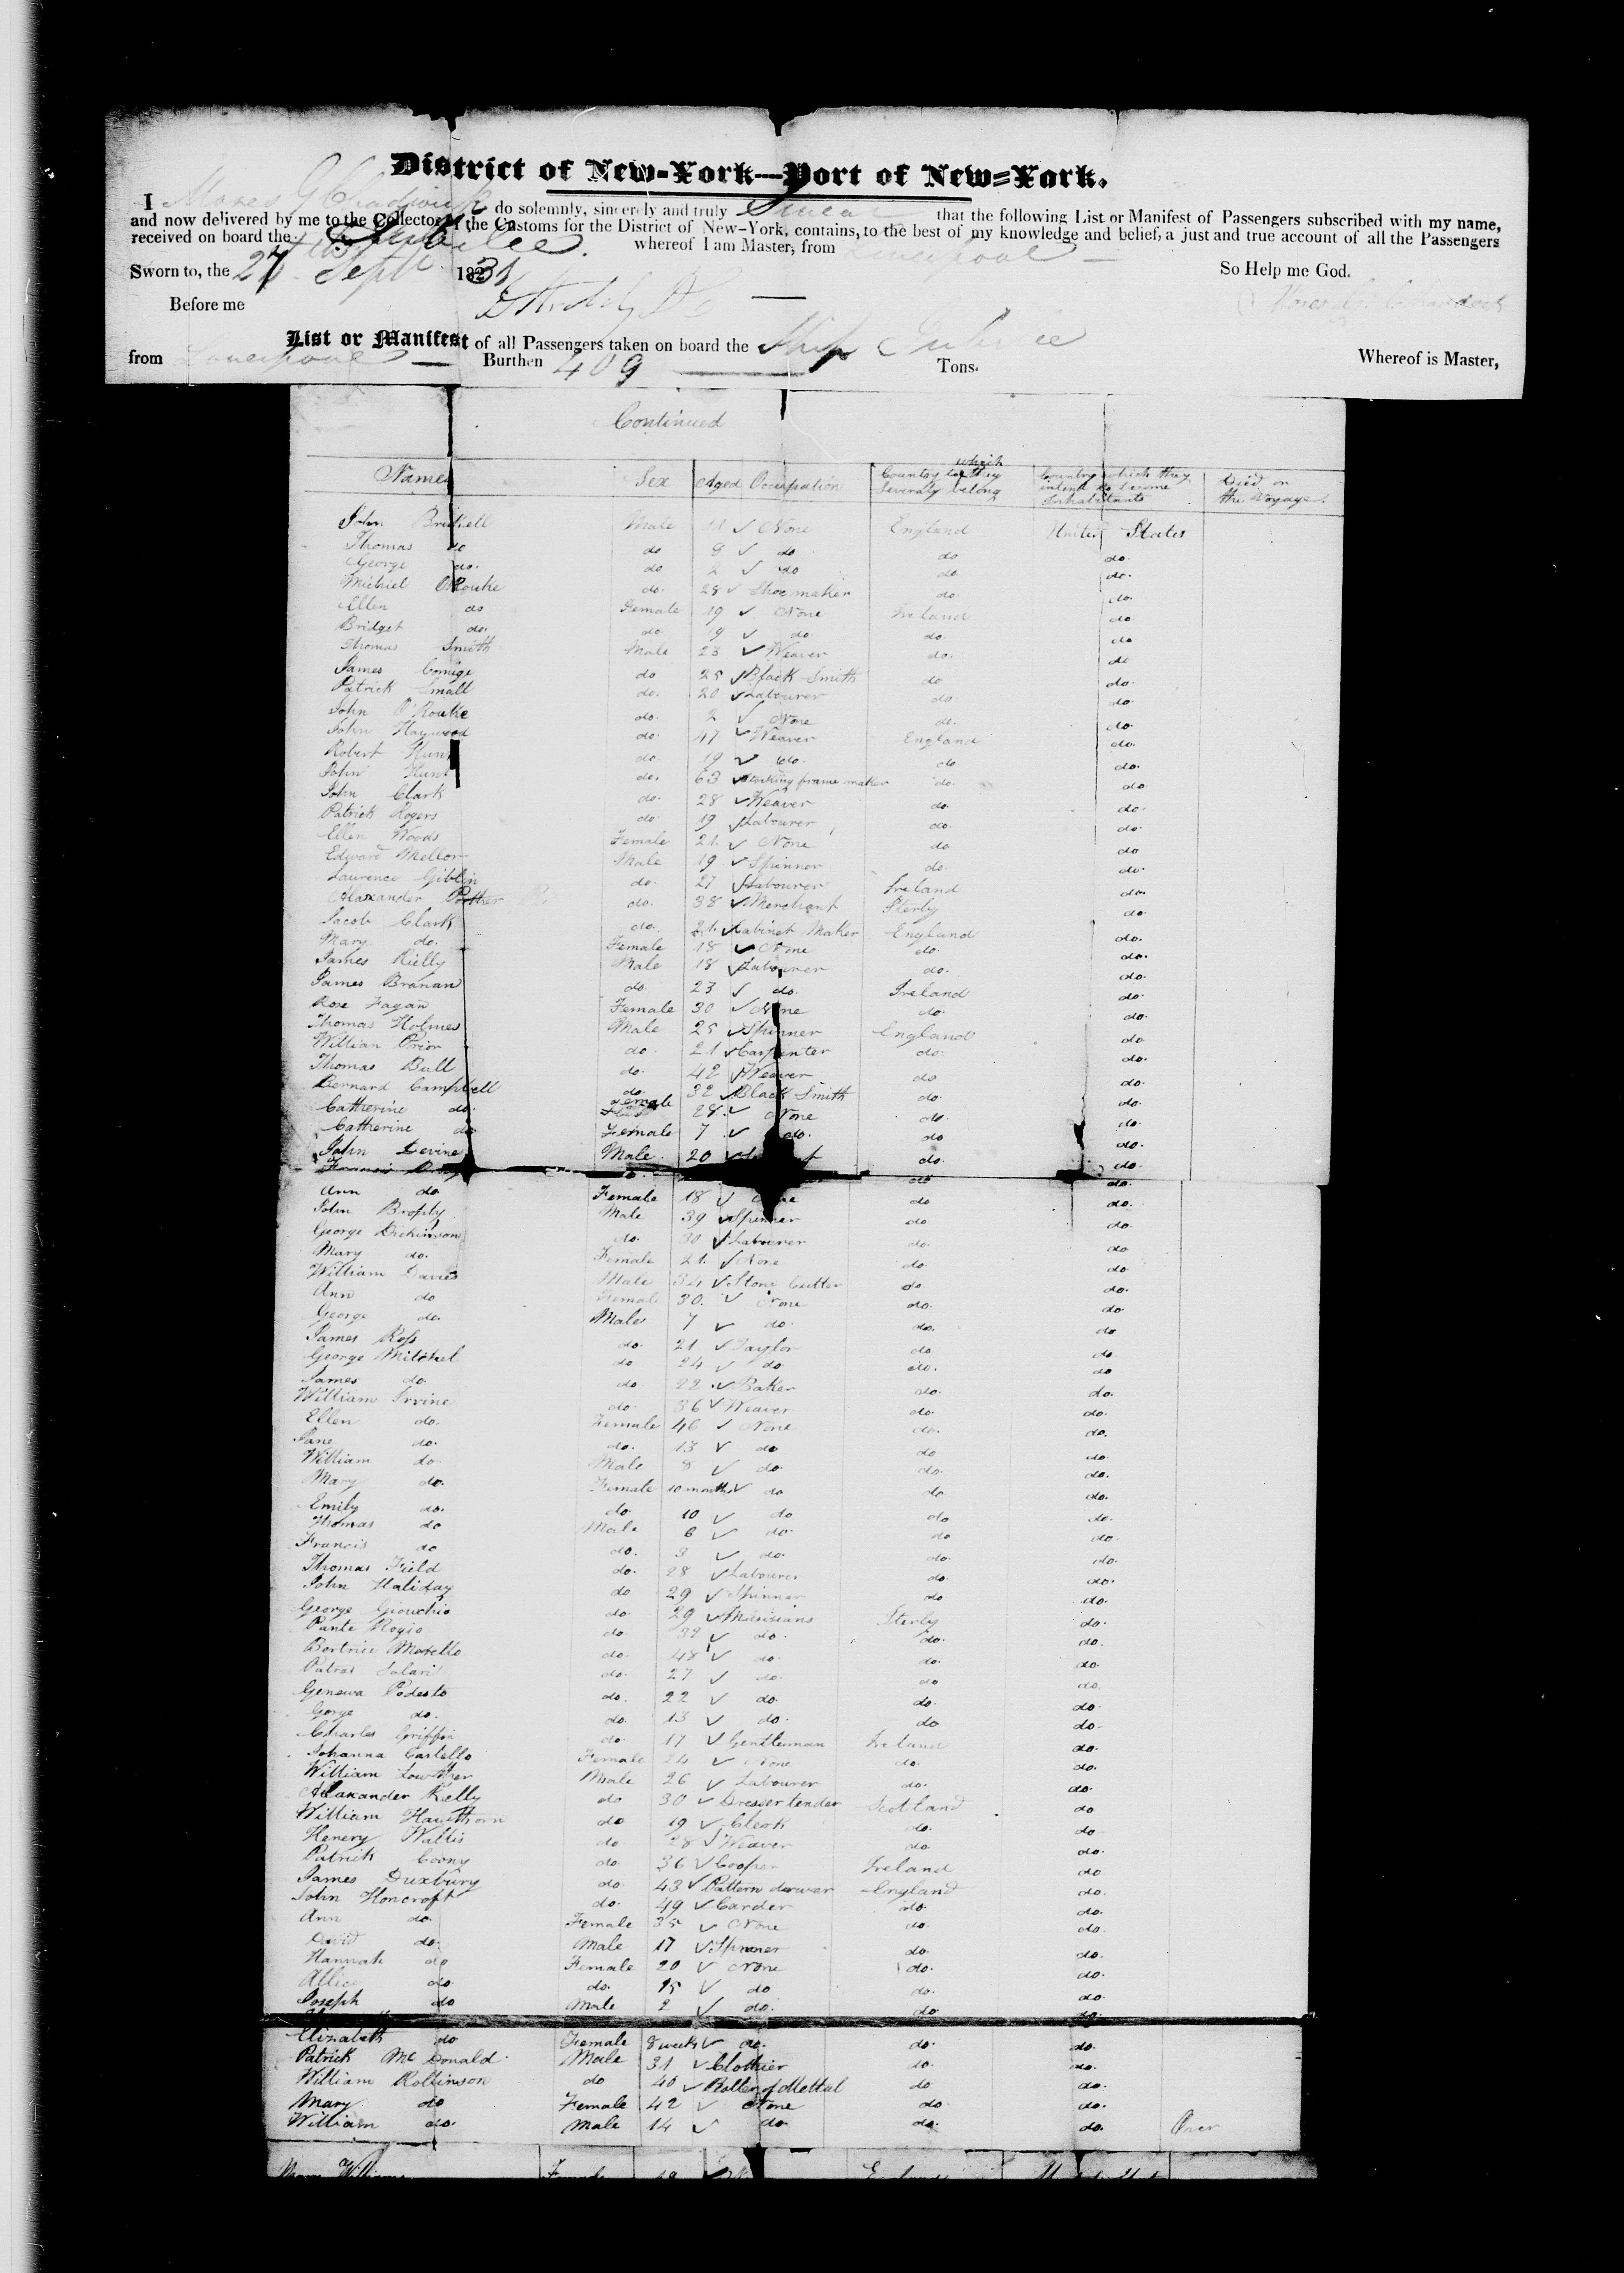 District of New-York—Port of New-York.
I Moses G Chadwick do solemnly, sincerely and truly Swear that the following List or Manifest of Passengers subscribed with my name,
and now delivered by me to the Collector of the Customs for the District of New-York, contains, to the best of my knowledge and belief, a just and true account of all the Passengers
received on board the Ship Jubilee whereof I am Master, from Liverpool
Sworn to, the 27 Septr 1831 So Help me God.
Before me Moses G. Chadwick
List or Manifest of all Passengers taken on board the Ship Jubilee Whereof is Master,
from Liverpool Burthen 409 Tons.
Continued
Names Sex Aged Occupation Country to which they severaly belong Country which they intend to become Inhabitants Died on the Voyage.
John Male 11 None England United States
Thomas do do 8 do do do.
George do. do 2 do do. do.
Michiel ORouke do. 28 Shoe maker do. do.
Ellen do Female 19 None Ireland do
Bridget do. do. 19 do. do. do
Thomas Smith Male 23 Weaver do. do
James do 25 Black Smith do do.
Patrick Small do. 20 Labourer do do.
John O'Rouke do. 2 None do. do.
John Haywood do. 47 Weaver England do.
Robert Hunt do. 19 do. do. do.
John Hunt do. 63 Stocking frame maker do. do.
John Clark do. 28 Weaver do. do.
Patrick Rogers do. 19 Labourer do. do.
Ellen Woods Female 21. None do do
Edward Mellor Male 19 Spinner do. do.
Laurence Giblin do. 27 Labourer Ireland do.
Alaxander do. 38 Merchant Sterly do.
Jacob Clark do. 21. Cabinet Maker England do.
Mary do. Female 18 None do. do.
James Rielly Male 18 Labourer do. do.
James Branan do. 23 do. Ireland do.
Rose Fagan Female 30 None do. do.
Thomas Holmes Male 25 Spinner England do
William Prior do. 21 Carpenter do. do.
Thomas Bull do. 42 Weaver do do.
Bernard Campbell do. 32 Black Smith do. do.
Catherine do. Female 28. None do. do.
Catherine do Female 7 do. do do.
John Devine Male. 20 do. do.
do do.
Ann do Female 18 None do do.
John Brophy Male 39 Spinner do do.
George Dickinson do. 30 Labourer do. do
Mary do. Female 21. None do. do.
William Davies Male 34 Stone Cutter do do.
Ann do Female 30. None do. do.
George do. Male 7 do. do. do
James Ross do. 21 Taylor do do.
George Mitchel do 24 do do. do
James do. do 22 Baker do. do.
William Irvine do. 36 Weaver do. do.
Ellen do. Female 46 None do. do.
Jane do. do. 13 do do do.
William do. Male 8 do. do. do.
Mary do. Female 10 months do do do.
Emily do. do. 10 do do do.
Thomas do Male 6 do. do do.
Francis do do. 3 do. do. do.
Thomas Field do. 28 Labourer do. do.
John Haliday do 29 Spinner do do.
George do. 29 Musicians Sterly do.
Pante Rogio do. 32 do. do. do.
Bortrice Matello do. 48 do. do. do.
Patras Solari do. 27 do. do do.
Genewa Podesto do. 22 do. do. do.
Gorge do. do. 13 do. do do.
Charles Griffin do. 17 Gentleman Ireland do.
Johanna Castello Female 24 None do. do.
William Lowther Male 26 Labourer do. do.
Alaxander Kelly do 30 Dresser tender Scotland do
William Hawthorn do 19 Clerk do. do
Henery Wallis do 28 Weaver do. do.
Patrick Coony do. 36 Cooper Ireland do
James Duxbury do. 43 Pattern drawer England do.
John Honcroft do. 49 Carder do. do.
Ann do. Female 35 None do. do.
David do. Male 17 Spinner do. do.
Hannah do Female 20 None do. do.
Allice do. do. 15 do do. do.
Joseph do Male 2 do. do. do.
Elizabeth do Female 8 weeks do. do. do.
Patrick Mc Donald Male 31 Clothier do. do.
William Rollinson do 40 Roller of Mettal do do.
Mary do Female 42 None do do.
William do. Male 14 do do. do. Over
Williams Female 19